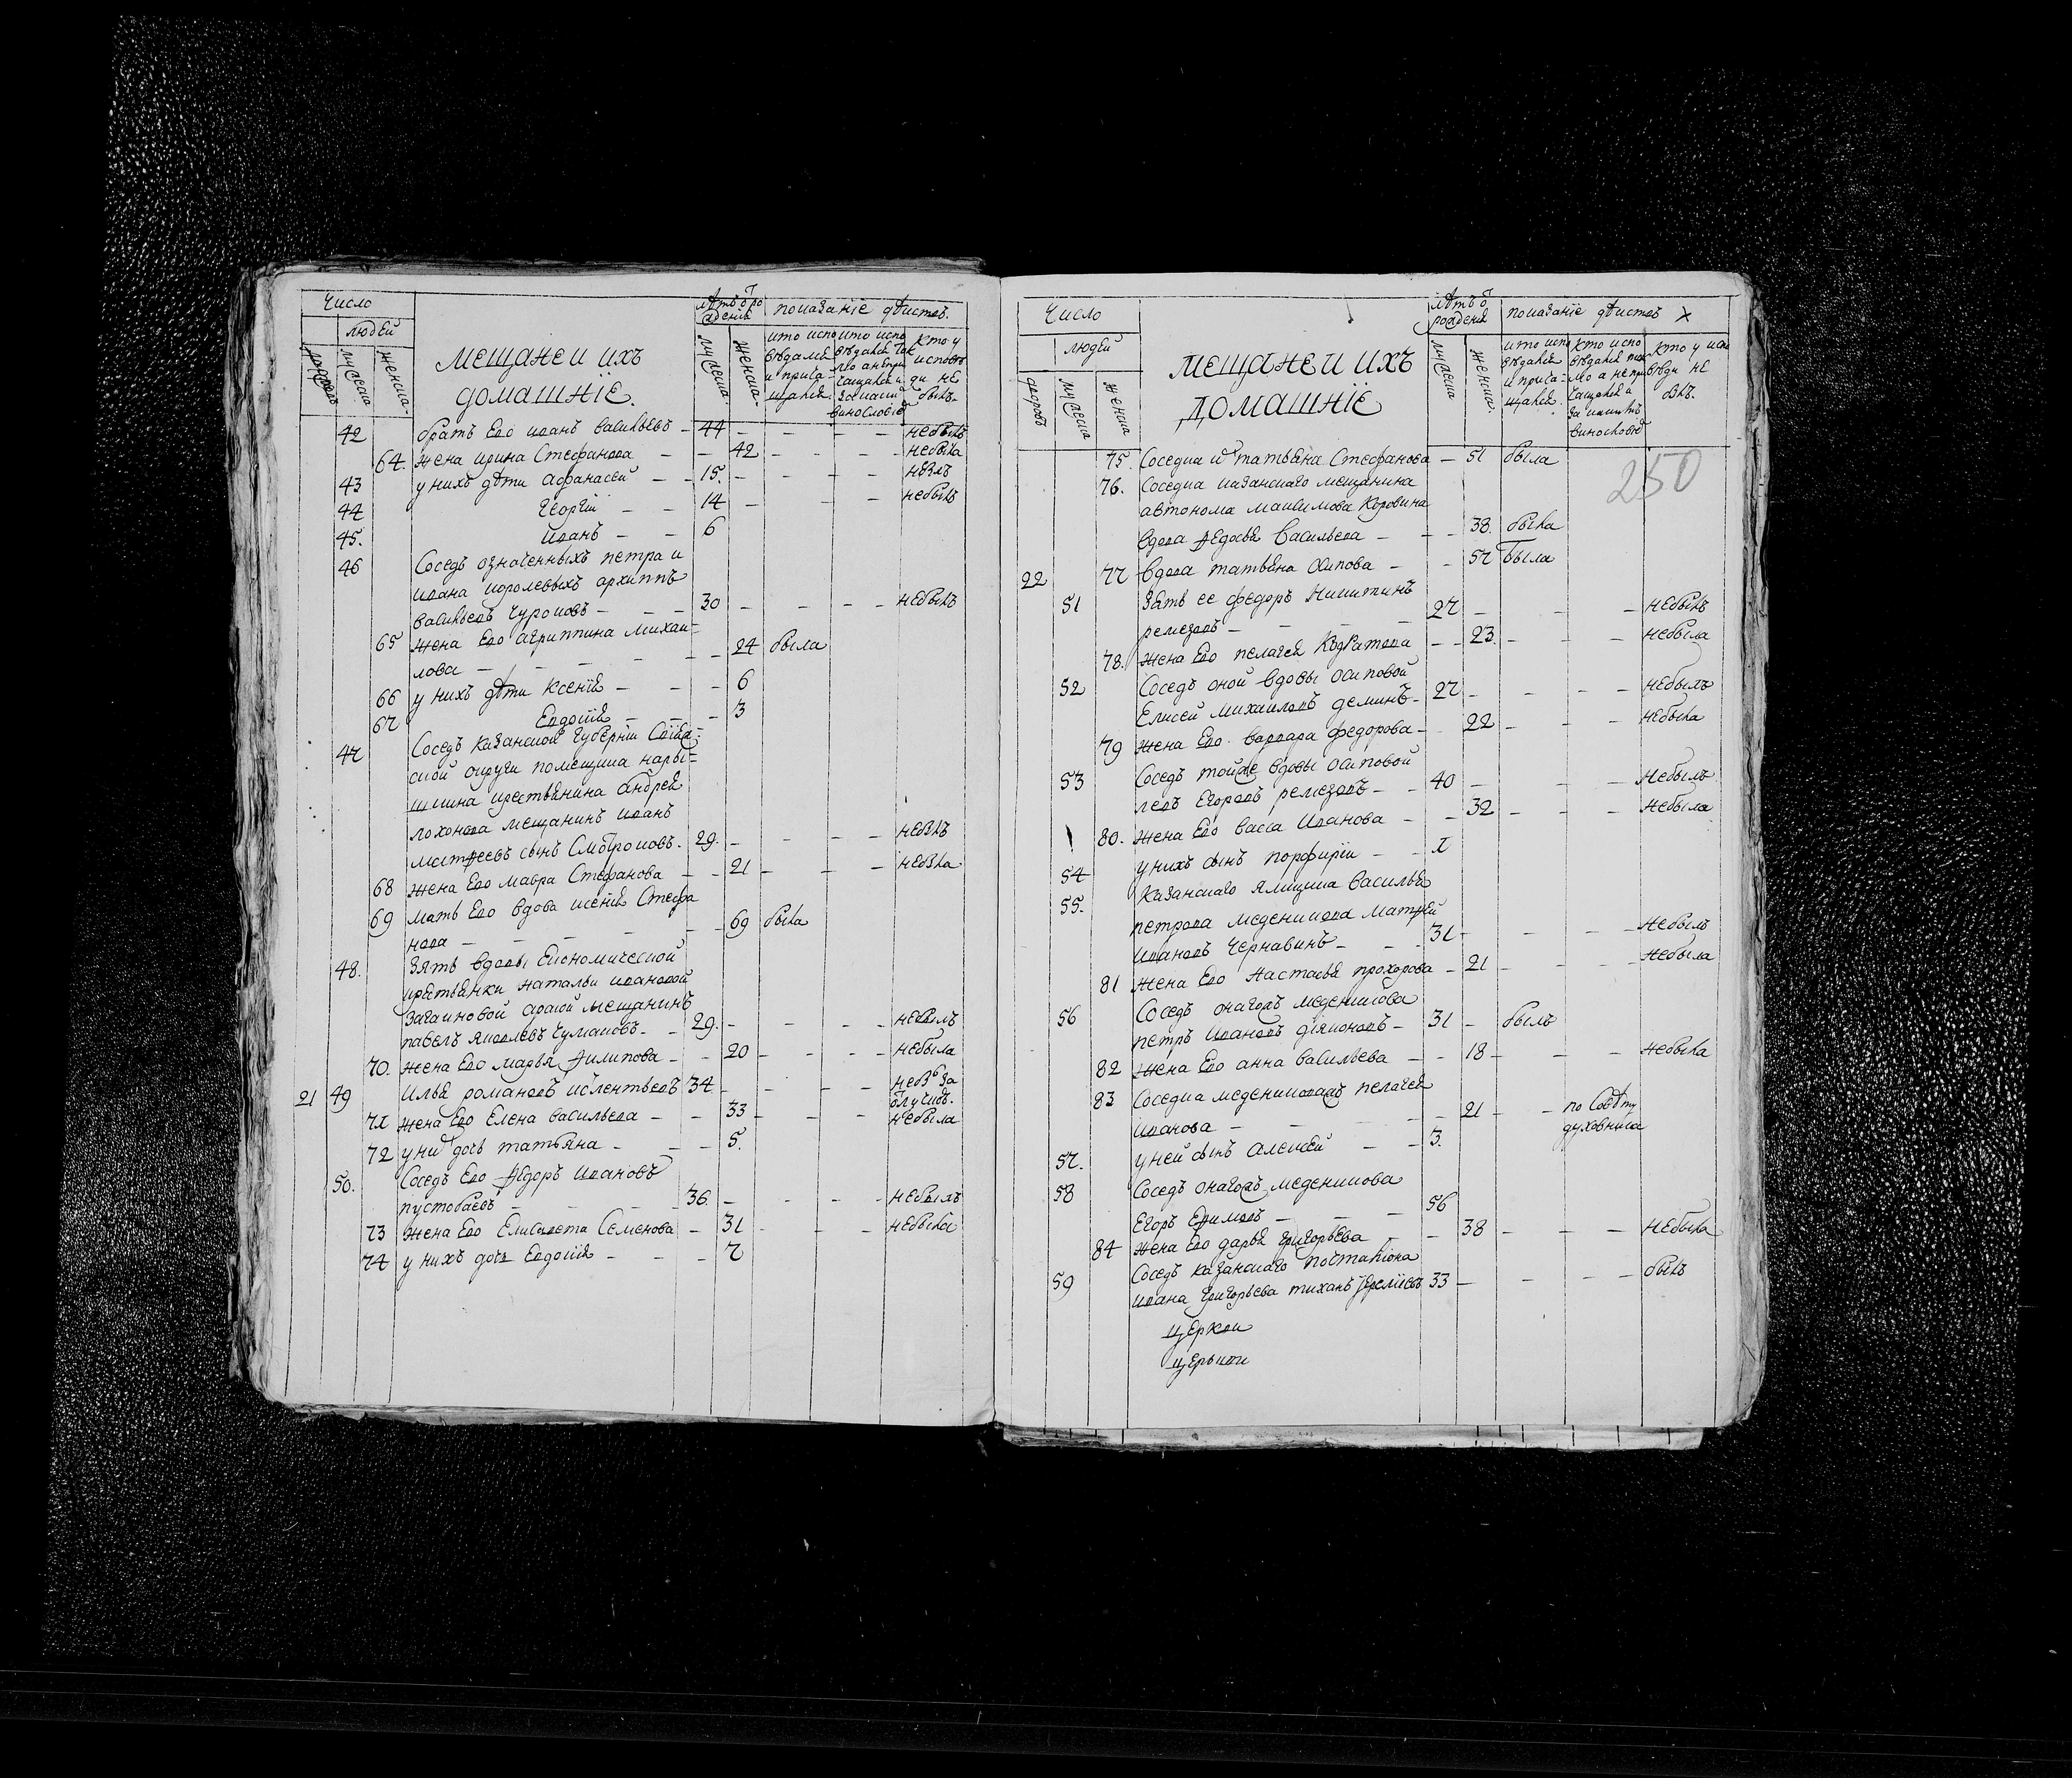 Число
людей
дворовъ
мужеска
женска.
мещане и ихъ
домашніе.
лѣтъ ѿ ро
жденія
мужеска.
женска.
показаніе дѣиствъ.
кто испо
вѣдался
и прича-
щался.
кто испо
вѣдался ток
мо а не при
чащался и
за каким
винословіе
кто у
исповѣ
ди не
былъ.
42 братъ Его иванъ васильевъ – 44 – – – – небылъ
64. жена ирина Стефанова – – 42 – – – – небыла
43 у нихъ дѣти афанасей – – 15. – – – небылъ
44 Георгій – – 14 – – – небылъ
45. иванъ – – 6
46 Соседъ означенныхъ петра и
ивана королевыхъ архиппъ
васильевъ Чуроковъ – – – 30 – – – – небылъ
65 жена Его агриппина михаи=
лова – – – – – – 24 была
66 у нихъ дѣти ксенія – – – 6
67 Евдокія – – – 3
47 Соседъ казанской Губерніи Спас=
ской округи помещика нары=
шкина крестьянина андрея
лохонова мещанинъ иванъ
матѳеевъ сынъ Симбироковъ. 29. – – – – небылъ
68 жена Его мавра Стефанова – – 21 – – – небыла
69 мать Его вдова ксенія Стефа
нова – – – – – 69 была
48. Зять вдовы Економической
крестьянки натальи ивановой
Загаиновой арской мещанинъ
павелъ яковлевъ Чумаковъ. – – 29. – – – – небылъ
70. жена Его марья Филипова – – 20 – – – – небыла
21 49 Илья романовъ ислентьевъ 34 – – – небъ за
ѿлучкѣ.
71 жена Его Елена васильева – – 33 – – – небыла
72 у них дочь татьяна – – – 5.
50. Соседъ Его Ѳедоръ ивановъ
пустобаевъ – – – – 36. – – – – небылъ
73 жена Его Елисавета Семенова – 31 – – – небыла
74 у нихъ дочь Евдокія – – – 7
Число
людей
дворовъ
мужеска
женска
мещане и ихъ
домашніе
лѣтъ ѿ
рожденія
мужеска
женска.
показаніе дѣиствъ ×
кто испо
вѣдался
и прича-
щался.
кто испо
вѣдался ток
мо а не при
чащался и
за какимъ
винословіе
кто у испо
вѣди не
былъ.
250
75. Соседка ихъ татьяна Стефанова – 51 была
76. Соседка казанскаго мещанина
автонома максимова Коровина
вдова Ѳедосья васильева – – – 38. была
22 77 вдова татьяна Осипова – – 57 была
51 Зять ее федоръ Никитинъ
ремезовъ – – – 27 – – – небылъ
78. жена Его пелагея Кодратова – – 23. – – – небыла
52 Соседъ оной вдовы осиповой
Елисей михаиловъ деминъ – 27 – – – – небылъ
79 жена Его варвара федорова – 22 – – – небыла
53 Соседъ тойже вдовы осиповой
левъ Егоровъ ремезовъ – – 40 – – – небылъ
80. жена Его васса иванова – – 32 – – – небыла
54 у нихъ сынъ порфирій – – 7
55. Казанскаго ямщика василья
петрова меденикова матѳей
ивановъ Чернавинъ – – – 31 – – – небылъ
81 жена Его настасья прохорова – 21 – – – небыла
56 Соседъ онагожъ меденикова
петръ ивановъ дияконовъ – 31 – былъ
82 жена Его анна васильева – – 18 – – – небыла
83 Соседка меденикова пелагея
иванова – – – – 21 – – по Совѣту
духовника
57. у ней сынъ алексей – – 3.
58 Соседъ онагожъ меденикова
Егоръ Ефимовъ – – – 56
84 жена Его дарья григорьева – – 38 – – – небыла
59 Соседъ казанскаго почталіона
ивана Григорьева тиханъ Іеремѣевъ 33 – – – – былъ
церкви
церькви